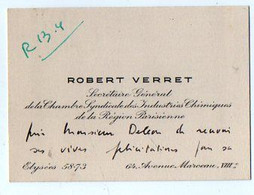 R 13.4
ROBERT VERRET
Secrétaire Général
de la Chambre Syndicale des Industries Chimiques
de la Région Parisienne
prie Monsieur de recevoir
ses vives félicitations
Elysées 58-73 64, Avenue Marceau. VIIIe